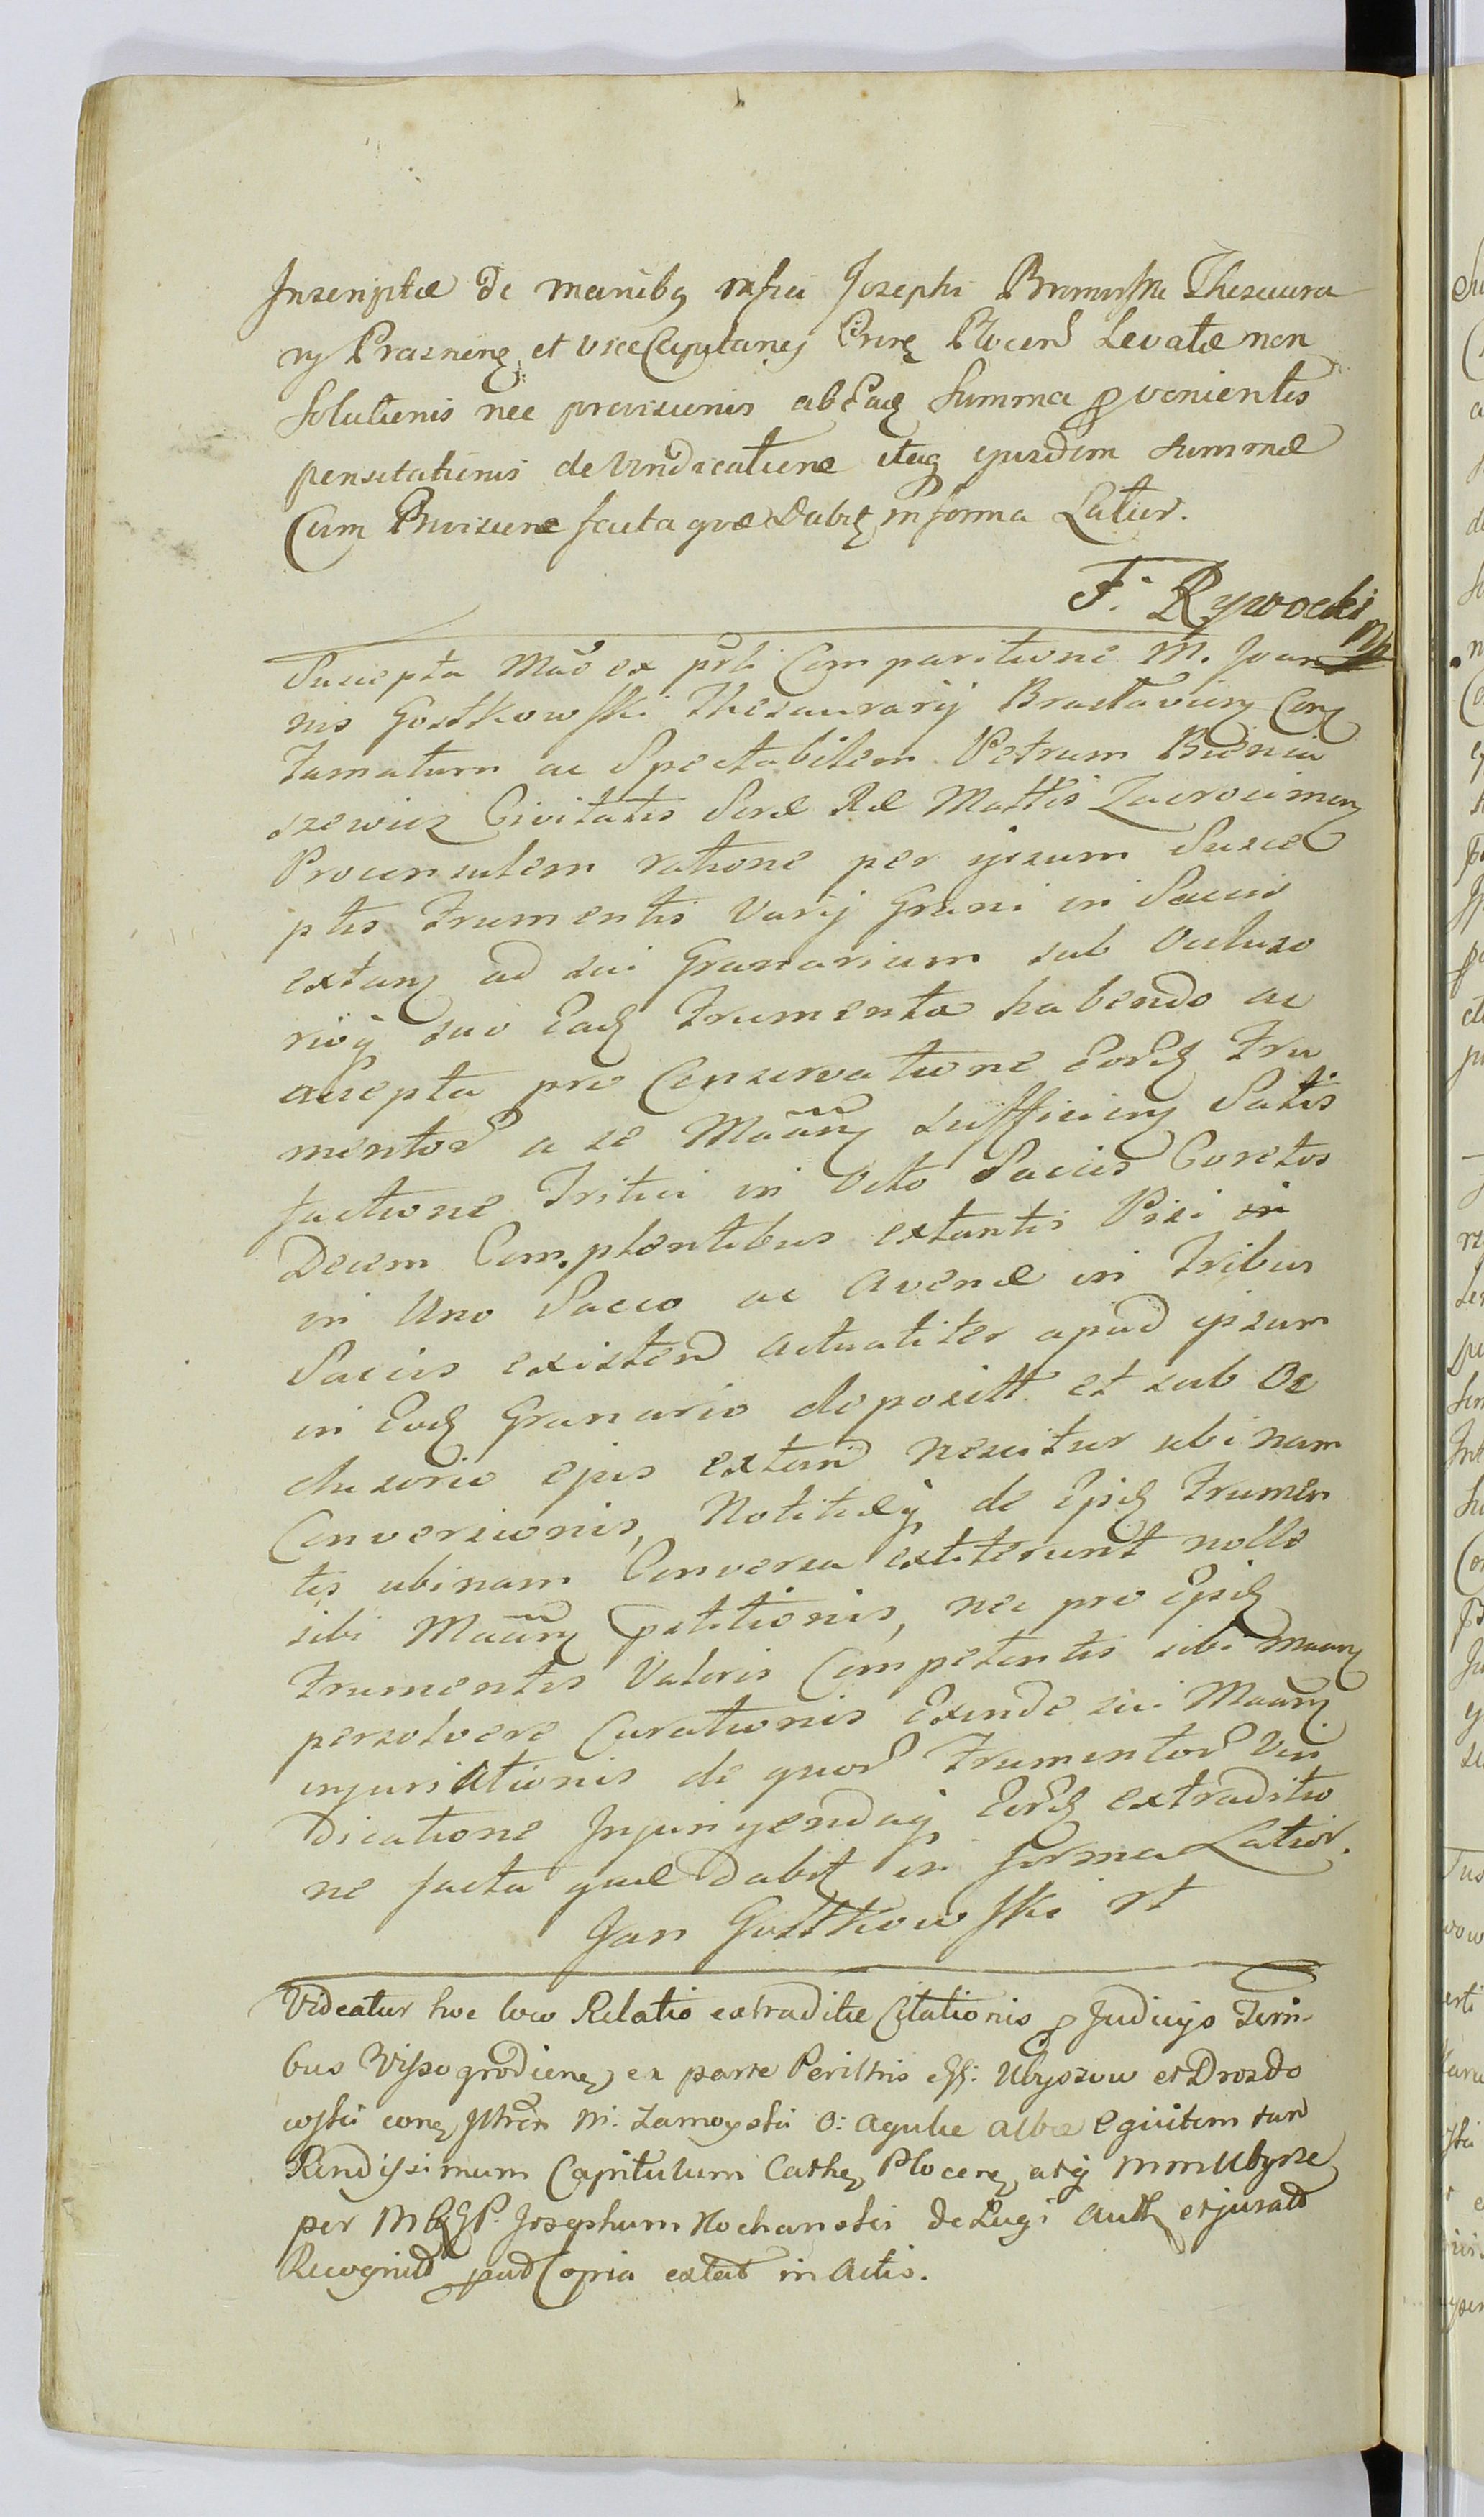 Inscriptæ de manibq Josephi Bromirski Thesaura
rij Prasnenę et vice Capitanej Crivę Plocenę Levatæ non
solutionis nec provisionis ab Eadę Summa provenientis
pensitationis de Vindicatione itaq ejusdem summæ
Cum Provisione facta qvæ Dabitę in forma Latior.
F. Rywocki mp
Suscepta Mãõ ex pñli Comparitione M. Joan
nis Gostkowski Thesaurarij Braclavienę Conę
Famatum ac Spectabilem Petrum Bienia
szewicz Civitatis Seræ Ræ Mattis Zacrocimenę
Proconsulem ratione per ipsum Susce
ptis Frumentis Varij Grani in Saccis
extanę ad sui Granarium sub Occluso
rioq suo Eadę Frumenta habendo ac
accepta pro Conservatione Eorędę Fru
mentor a se Mããnę sufficienę Satis
factione Tritici in Octo Saccis Coretos
Decem Complentibus extantis Pisi in
in Uno Sacco ac Avenæ in Tribus
Saccis existen actualiter apud ipsum
in Eodę Granario deposiltt et sub Oc
clusorio ejus extan nescitur ubinam
Conversionis, Notitiæq de Ejsdę Frumen
tis ubinam Conversa extiterunt nolle
sibi Mãã̃nę petitionis, nec pro Ejsdę
Frumentis Valoris Competentis sibi Maanę
persolvere Curationis Exinde sui Maanę
injuriationis de quor Frumentor Vin
dicatione Injungendaq Eorędę extraditio
ne facta quæ Dabitę in forma Latior.
Jan Gostkowski rt
Videatur hoc loco Relatio extraditæ Citationis p Judicijs Terri-
bus Vissogrodienę ex parte Perilltris Ubyszow et Drozdo
wski conę Illtren M. Zamoyski O: Aqulæ Albæ Equitem tan
Rendissimum Capitulum Cathę Plocenę atq MM Ubysze
per Josephum Kochanski de Lugi Auth et jurat
Recognit put Copia extat in Actis.